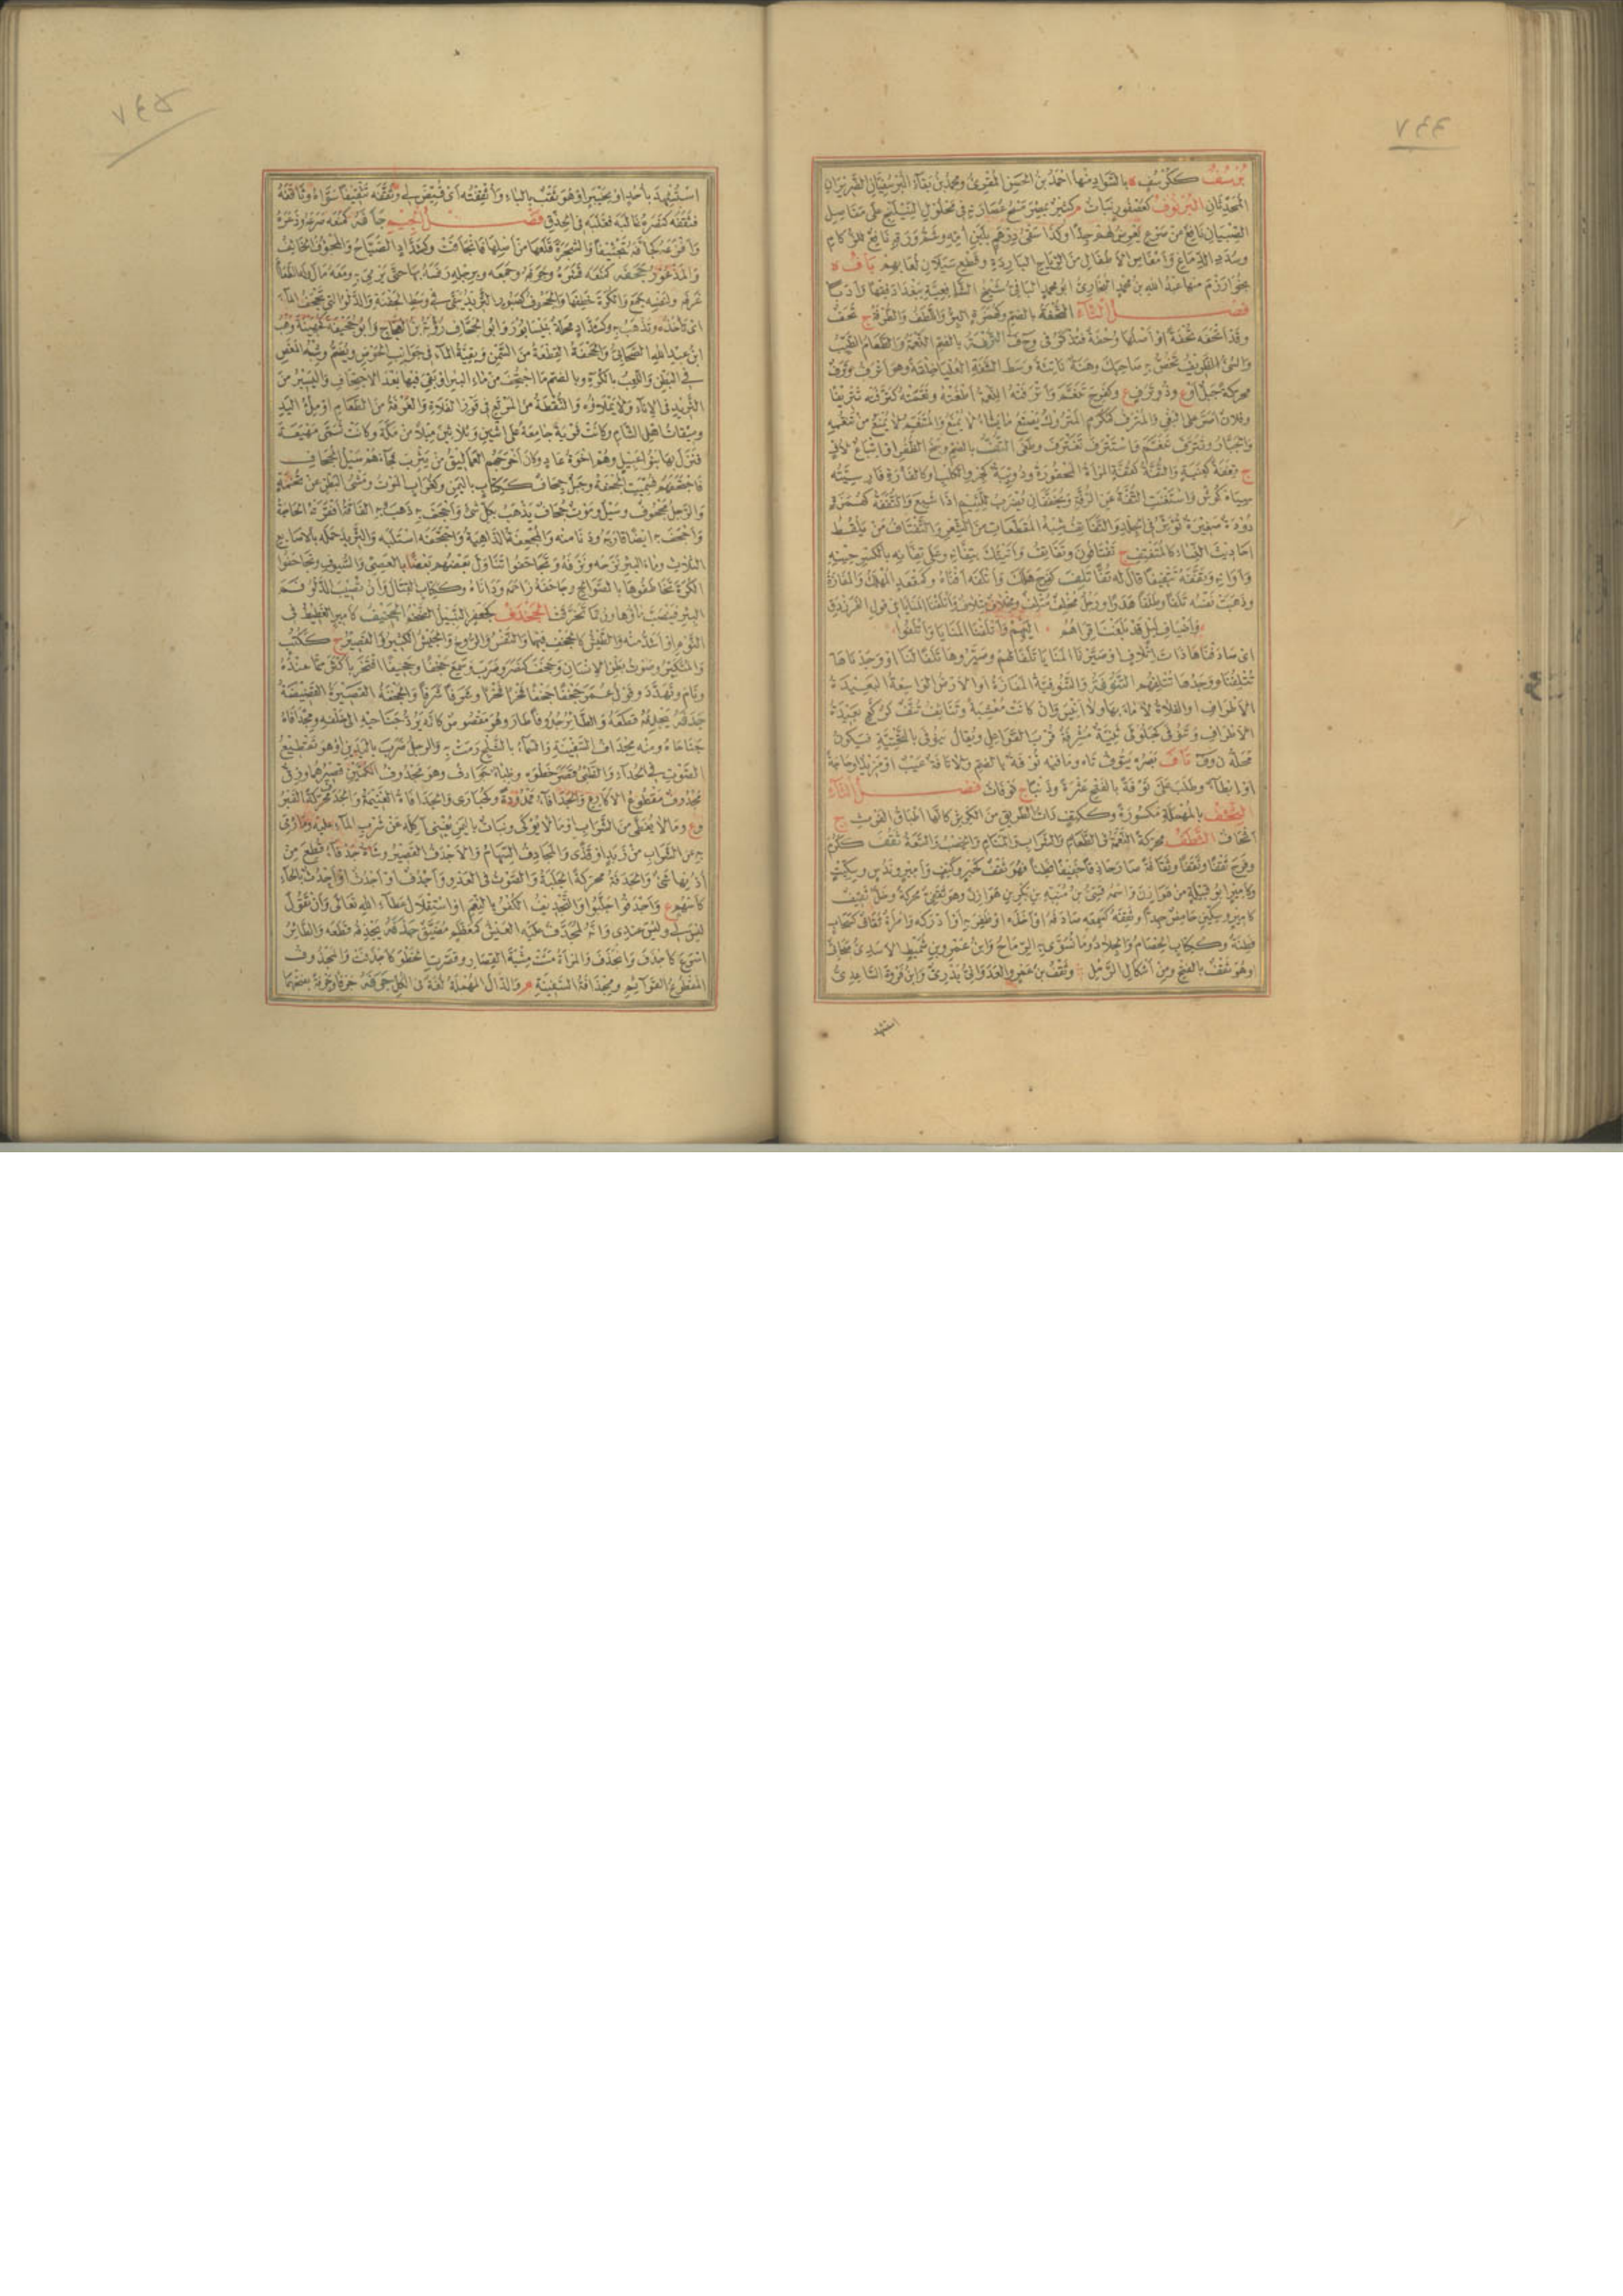 ٧٤٤
برسف ككرسف ة بالسواد منها احمد بن الحسن المقرئ ومحمد بن بقاء البرسفيان الضريران
المحدثان البرنوف كعصفور نبات م كثير بمصر مسح عصارته فى محلول النيلنج على مفاصل
الصبيان نافع من صرع يعرض لهم جدا وكذا سقى درهم بلبن أمه وشم ورقه نافع للزكام
وسدد الدماغ وامغاص الاطفال من الرياح الباردة وقطع سيلان لعابهم باف ة
بخوارزم منها عبد الله بن محمد البخارى ابو محمد البافى شيخ الشافعية ببغداد فقها وادبا
فصل التاء التحفة بالضم وكهمزة البر واللطف والطرفة ج تحف
وقد اتحفه تحفة او اصلها وحفة فتذكر فى وح ف الترفة بالضم النعمة والطعام الطيب
والشئ الظريف تخص به صاحبك وهنة ناتئة وسط الشفة العليا خلقة وهو اترف وترف
محركة جبل او ع وذو ترف ع وكفرح تنعم واترفته النعمة اطغته ونعمته كترفته تتريفا
وفلان اصر على البغى والمترف كمكرم المتروك يصنع ما يشاء لا يمنع والمتنعم لا يمنع من تنعمه
والجبار وتترف تنعم واستترف تغترف وطغى التف بالضم وسخ الظفر او اتباع لاف
ج تففة كعنبة والتفة كقفة المراة المحقورة ودويبة كجرو الكلب او كالفأرة فارسيته
سياه كوش واستغنت التفة عن الرفة ويخففان يضرب للئيم اذا شبع والتففة كهمزة
دودة صغيرة تؤثر فى الجلد والتفاتف شبه المقطعات من الشعر والتفتاف من يلقط
احاديث النساء كالمتفتف ج تفتافون وتفاتف واتيتك بتفانه وعلى تفانه بالكسر حينه
واوانه وتففه تتفيفا قال له تفا تلف كفرح هلك واتلفه افناه وكمقعد المهلك والمفازة
وذهبت نفسه تلفا وطلفا هدرا ورجل مخلف متلف ومخلاف متلاف واتلفنا المنايا فى قول الفرزدق
واضياف ليل قد بلغنا قراهم اليهم واتلفنا المنايا واتلفوا
اى صادفناها ذات اتلاف او صيرنا المنايا تلفا لهم وصيروها تلفا لنا او وجدناها
تتلفنا ووجدوها تتلفهم التنوفة والتنوفية المفازة او الارض الواسعة البعيدة
الاطراف او الفلاة لا ماء بها ولا انيس وان كانت معشبة وتنائف تنف كركع بعيدة
الاطراف وتنوفى كجلولى ثنية مشرفة قرب القواعل ويقال ينوفى بالتحتية فيكون
محله ن وف تاف بصره يتوف تاه وما فيه توفة بالضم ولا تافة عيب او مزيد او حاجة
او ابطاء وطلب على توفة بالفتح عثرة وذنبا ج توفات فصل الثاء
الثحف بالمهملة مكسورة وككتف ذات الطرائق من الكرش كانها اطباق الفرث ج
اثحاف الثطف محركة النعمة فى الطعام والشراب والمنام والخصب والسعة ثقف ككرم
وفرح ثقفا وثقفا وثقافة صار حاذقا خفيفا فطنا فهو ثقف كحبر وكتف وامير وندس وسكيت
وكامير ابو قبيلة من هوازن واسمه قسى بن منبه بن بكر بن هوازن وهو ثقفى محركة وخل ثقيف
كامير وسكين حامض جدا وثقفه كسمعه صادفه او اخذه او ظفر به او ادركه وامراة ثقاف كسحاب
فطنة وككتاب الخصام والجلاد وما تسوى به الرماح وابن عمرو بن شميط الاسدى صحابى
او هو ثقف بالفتح ومن اشكال الرمل وثقف بن عمرو العدوانى بدرى وابن فروة الساعدى
استشهد
٧٤٥
استشهد باحد او بخيبر او هو ثقب بالباء واثقفته اى قيض لى وثقفه تثقيفا سواه وثاقفه
فثقفه كنصره غالبه فغلبه فى الحذق فصل الجيم جأفه كمنعه صرعه وذعره
وافزعه كجأفه تجئيفا والشجرة قلعها من اصلها فانجأفت وكشداد الصياح والمجؤف الخائف
والمذعور جحفه كمنعه قشره وجرفه وجمعه وبرجله رفسه بها حتى يرمى به ومعه مال له الطعام
غرفه ولنفسه جمع والكرة خطفها والجحوف كصبور الثريد يبقى فى وسط الجفنة والدلو التى تجحف الماء
اى تاخذه وتذهب به وكشداد محلة بنيسابور وابو الجحاف رؤبة بن العجاج وابو جحيفة كجهينة وهب
ابن عبد الله الصحابى والجحفة القطعة من السمن وبقية الماء فى جوانب الحوض ويضم وشبه المغص
فى البطن واللعب بالكرة وبالضم ما اجتحف من ماء البئر او بقى فيها بعد الاجتحاف واليسير من
الثريد فى الاناء ولا يملاؤه والنقطة من المرتع فى قوز الفلاة والغرفة من الطعام او ملء اليد
وميقات اهل الشام وكانت قرية جامعة على اثنين وثلاثين ميلا من مكة وكانت تسمى مهيعة
فنزل بها بنو عبيل وهم اخوة عاد وكان اخرجهم العماليق من يثرب فجاءهم سيل الجحاف
فاجتحفهم فسميت الجحفة وجبل جحاف ككتاب باليمن وكغراب الموت ومشى البطن عن تخمة
والرجل مجحوف وسيل وموت جحاف يذهب بكل شئ واجحف به ذهب به الفاقة افقرته الحاجة
واجحف به ايضا قاربه ودنا منه والمجحفة الداهية واجتحفه استلبه والثريد حمله بالاصابع
الثلاث وماء البئر نزحه ونزفه وتجاحفوا تناول بعضهم بعضا بالعصى والسيوف وتجاحفوا
الكرة تخاطفوها بالصوالج وجاحفه زاحمه وداناه وككتاب القتال وان تصيب الدلو فم
البئر فينصب ماؤها وربما تخرقت الجحدف كجعفر النبيل الضخم الجخيف كامير الغطيط فى
النوم او اشد منه والطيش كالجخف فيهما والنفس والروع والجيش الكثير والقصير ج ككتب
والمتكبر وصوت بطن الانسان وجخف كنصر وضرب وسمع جخفا وجخيفا افتخر باكثر مما عنده
ونام وتهدد وقول عمر جخفا جخفا فخرا فخرا وشرفا شرفا والجخفة القصيرة القضيفة
جدفه يجدفه قطعه والطائر جدوفا طار وهو مقصوص كانه يرد جناحيه الى خلفه ومجدافاه
جناحاه ومنه مجداف السفينة والسماء بالثلج رمت به والرجل ضرب باليدين او هو تقطيع
الصوت فى الحداء والظبى قصر خطوه وظباء جوادف وهو مجدوف الكمين قصيرهما وزق
مجدوف مقطوع الاكارع والجدافاء ممدودة وكحبارى والجدافاة الغنيمة والجدف محركة القبر
وع وما لا يغطى من الشراب او ما لا يوكى ونبات باليمن يغنى آكله عن شرب الماء عليه وما رمى
به عن الشراب من زبد او قذى والمجادف السهام والاجدف القصير وشاة جدفاء قطع من
اذنها شئ والجدفة محركة الجلبة والصوت فى العدو واجدف او اجدث او اجدث بالحاء
كاسهم ع واجدفوا جلبوا والتجديف الكفر بالنعم او استقلال عطاء الله تعالى وان تقول
ليس لى وليس عندى وانه لمجدف عليه العيش كمعظم مضيق جذفه يجذفه قطعه والطائر
اسرع كاجذف وانجذف والمراة مشت مشية القصار وقصرت الخطو كاجذفت والمجذوف
المقطوع القوائم ومجذافة السفينة م والدال المهملة لغة فى الكل جرفه جرفا وجرفة بفتحهما